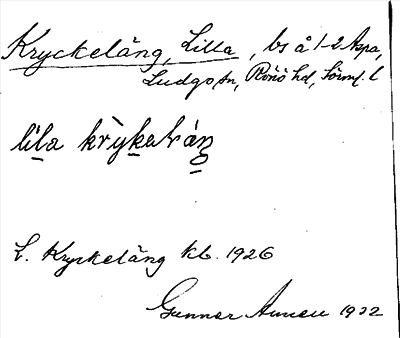 Kryckeläng, Lilla, bs å 1-2 Aspa,
Ludgo sn, Rönö hd, Sörml. l
lila krykaláŋ
L. Kryckeläng kb. 1926
Gunnar 1922